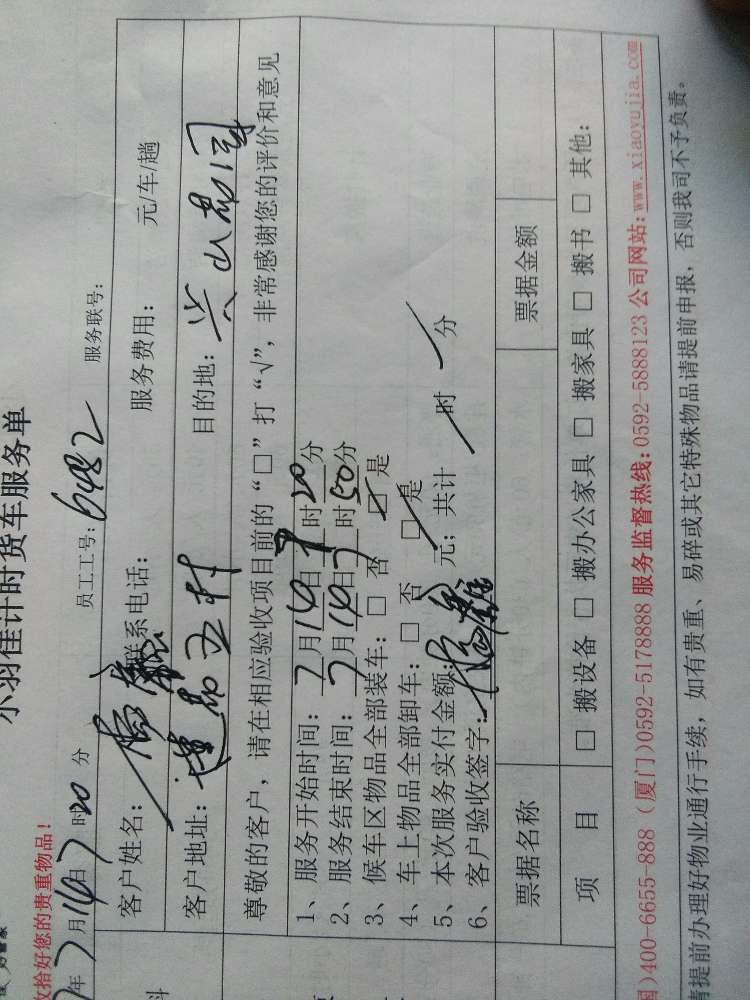 小羽佳计时货车服务单
收拾好您的贵重物品!
年7月14日7时20分 员工工号:6482 服务联号:
客户姓名: 联系电话: 服务费用: 元/车/趟
客户地址: 莲花五村 目的地:
尊敬的客户,请在相应验收项目前的“□”打“√”,非常感谢您的评价和意见
1、服务开始时间:7月14日7时20分
2、服务结束时间:7月14日7时50分
3、候车区物品全部装车:□ 否 ☑ 是
4、车上物品全部卸车:□ 否 ☑ 是
5、本次服务实付金额: 元;共计 时 分
6、客户验收签字:
票据名称 票据金额
项 目 □ 搬设备 □ 搬办公家具 □ 搬家具 □ 搬书 □ 其他:
国)400-6655-888 (厦门)0592-5178888 服务监督热线:0592-5888123 公司网站:www.xiaoyujia.com
请提前办理好物业通行手续,如有贵重、易碎或其它特殊物品请提前申报,否则我司不予负责。